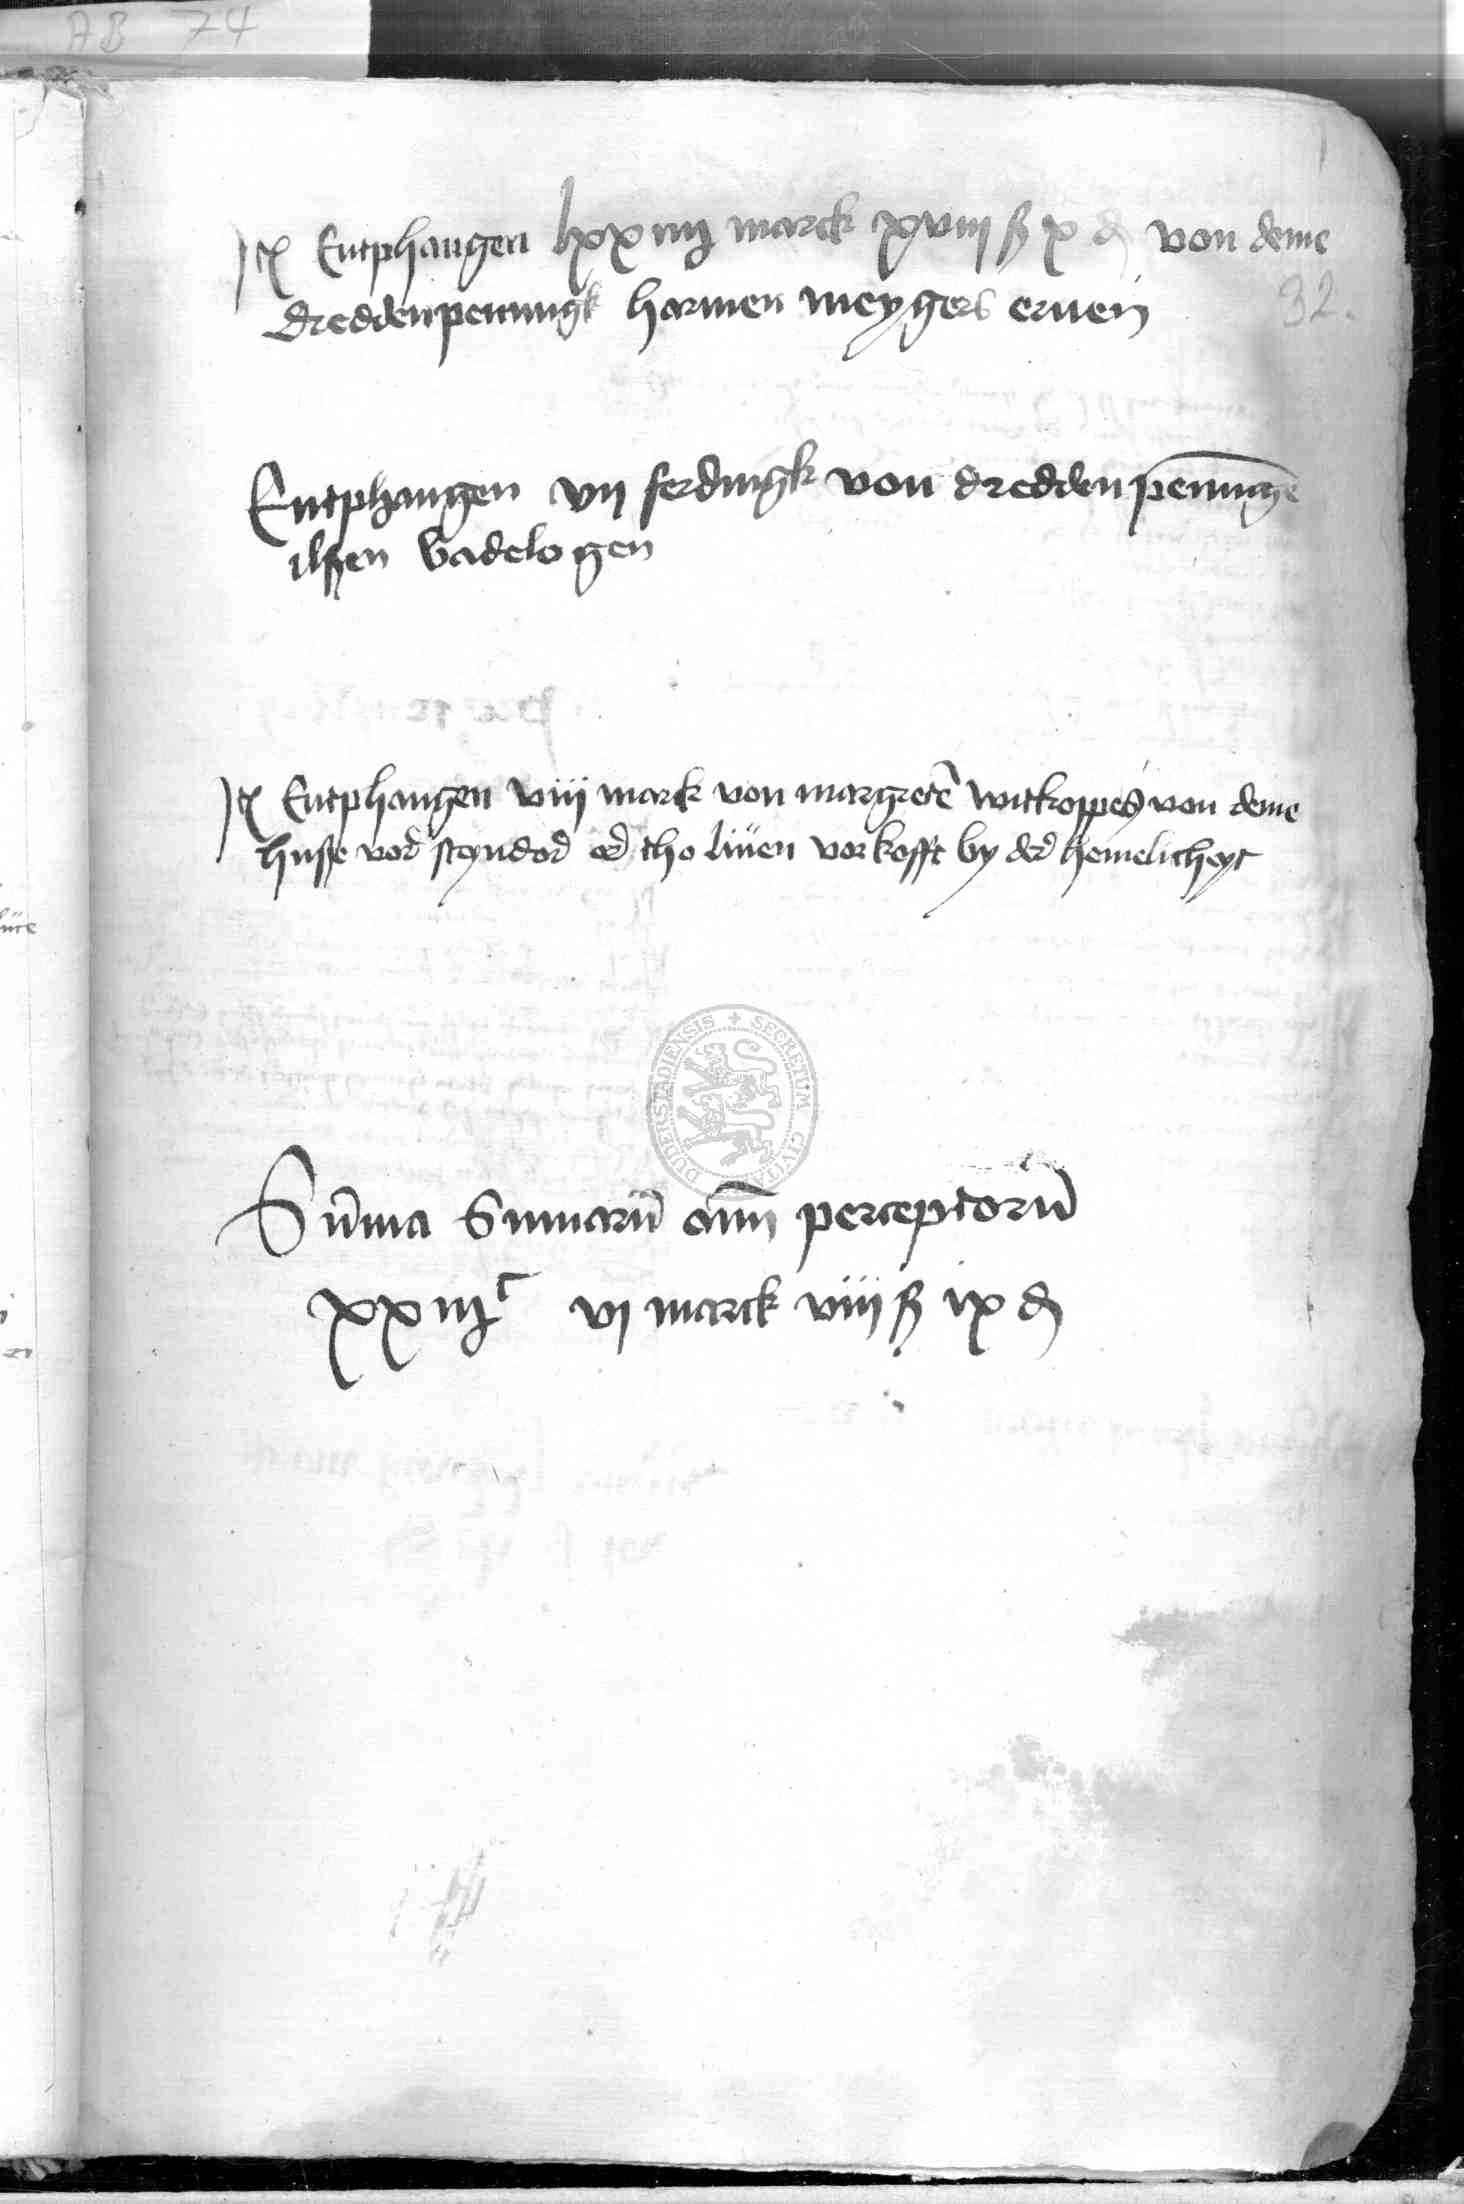 AB 74
Jt Entphangen lxxiiij marck xviij ß x d von deme
dreddenpenningk harmen meygers eruen
92.
Entphangen vij ferdingk von dredden pen̅inge
ilßen badelogen
Jt Entphangen viij marck von margretē witkoppes von deme
husse vor steyndor er tho liuen vorkofft by der hemelicheyt
DUDERSTADIENSIS + SECRETUM CIVITA
Sūma Summarū om̅ perceptorū
xxiijc vj marck viij ß ix d